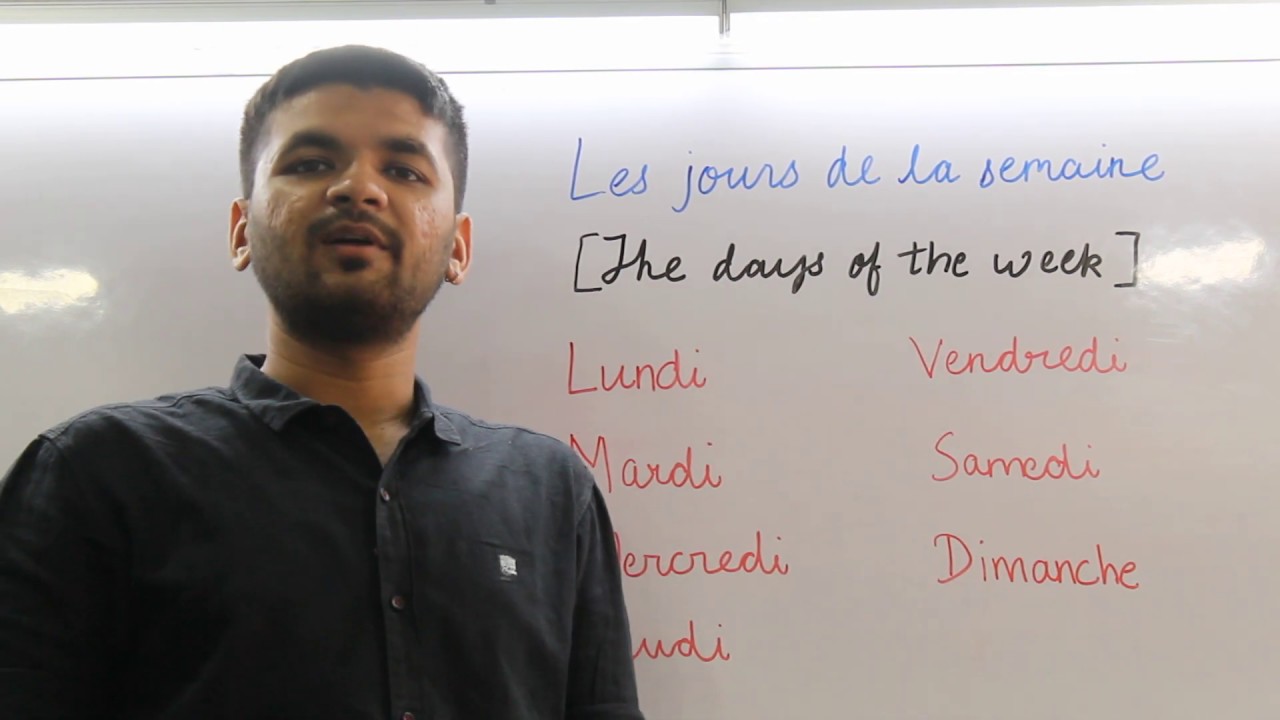 Les jours de la semaine
[The days of the week]
Lundi
Mardi
ercredi
udi
Vendredi
Samedi
Dimanche